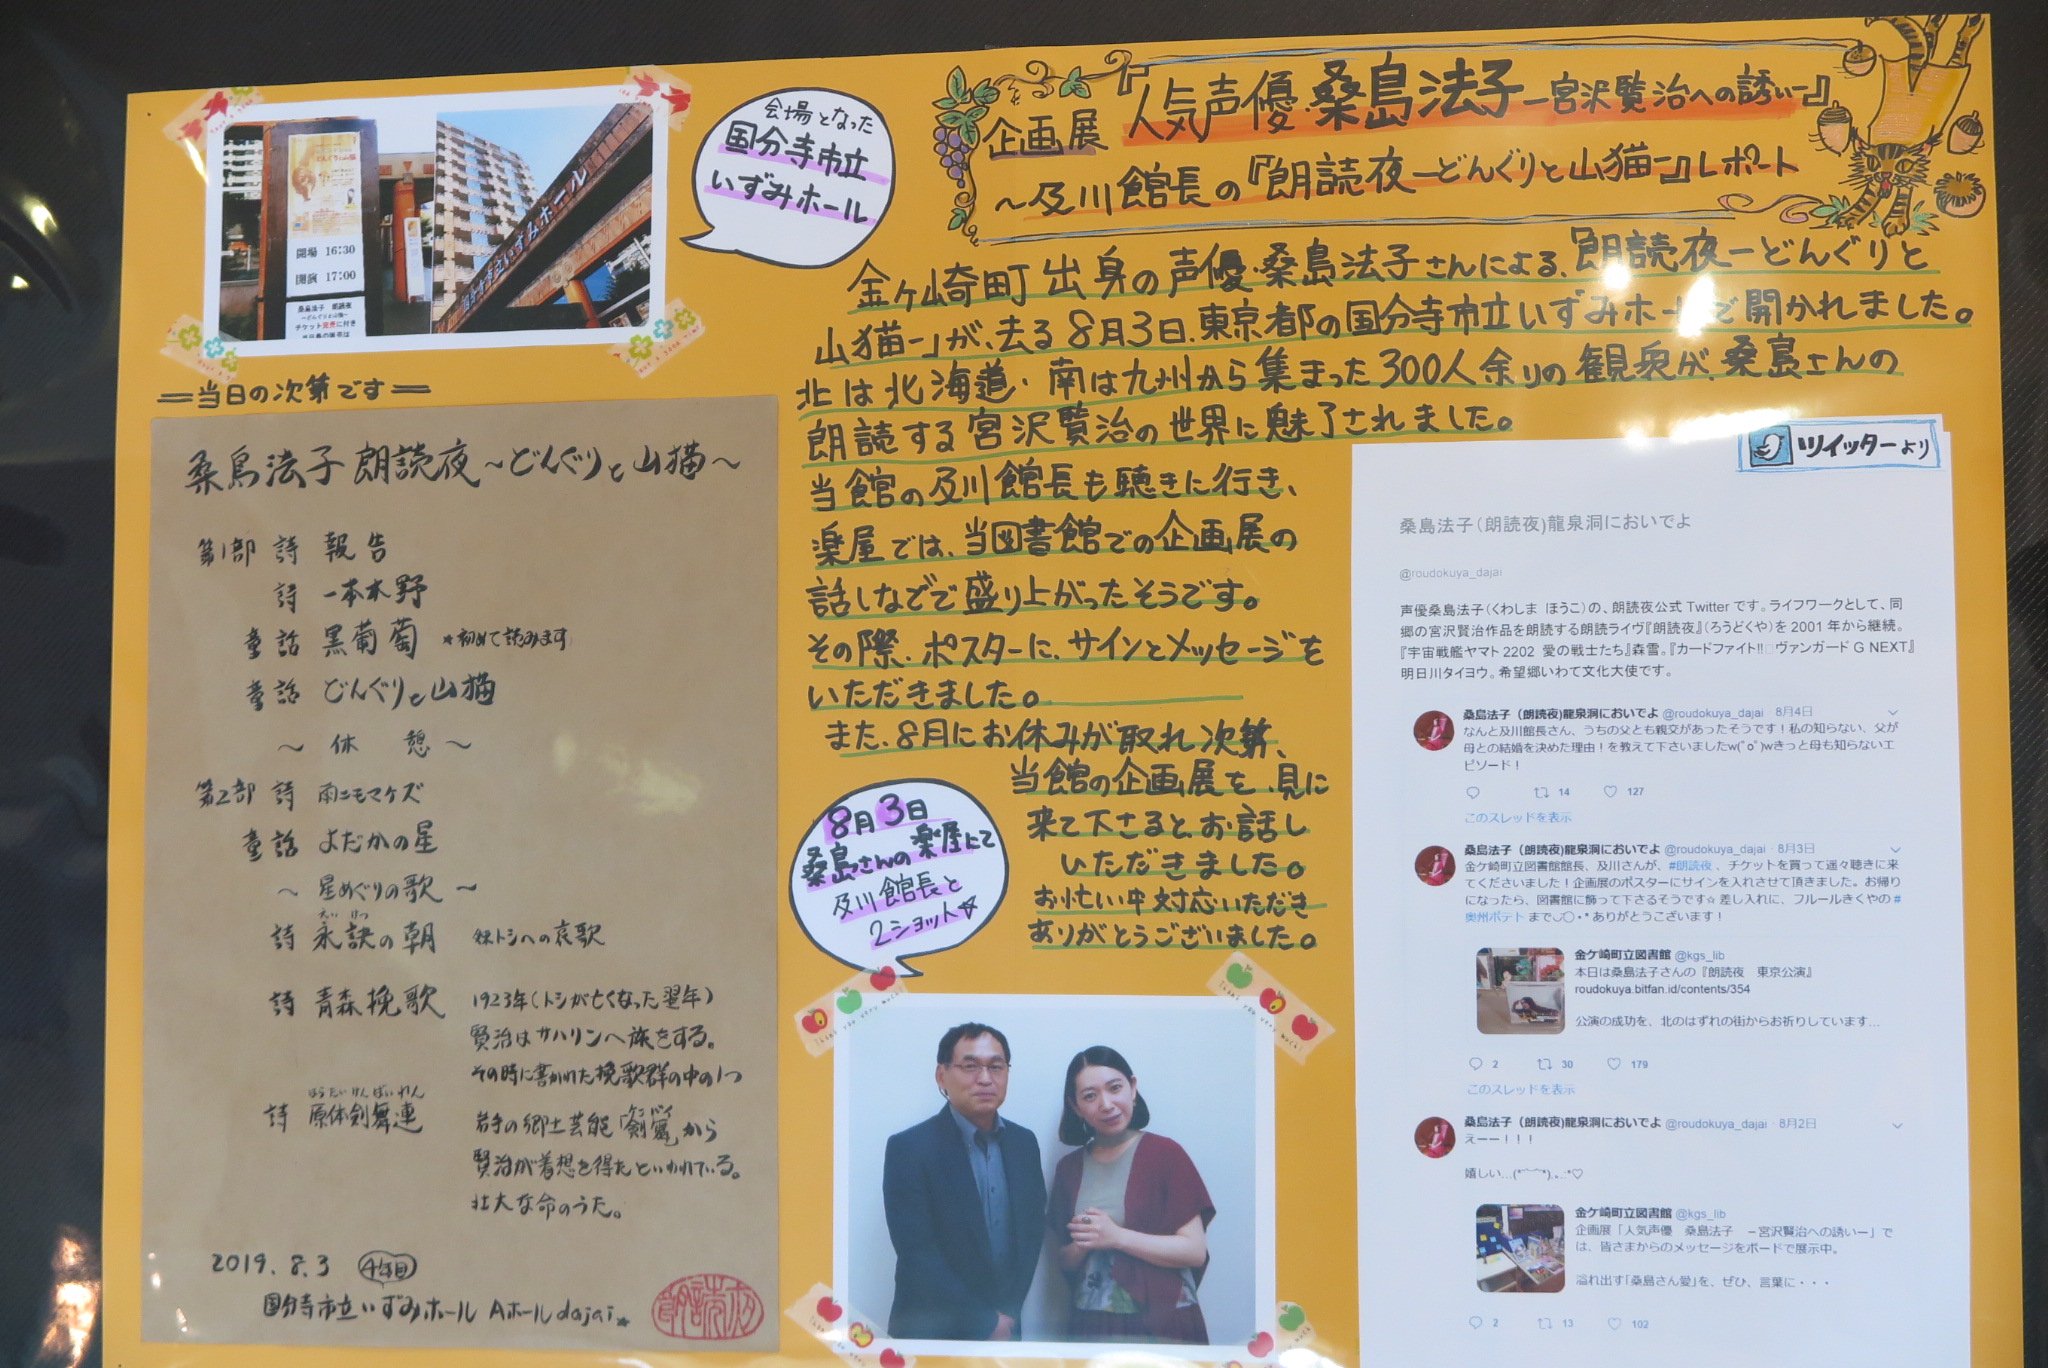 企画展『人気声優・桑島法子－宮沢賢治への誘い－』
～及川館長の『朗読夜－どんぐりと山猫－』レポート
会場となった
国分寺市立
いずみホール
開場 16:30
開演 17:00
桑島法子 朗読夜
～どんぐりと山猫～
国分寺市立いずみホール
金ヶ崎町出身の声優・桑島法子さんによる、『朗読夜－どんぐりと
山猫－』が、去る8月3日、東京都の国分寺市立いずみホールで開かれました。
北は北海道・南は九州から集まった300人余りの観衆が、桑島さんの
朗読する宮沢賢治の世界に魅了されました。
当館の及川館長も聴きに行き、
楽屋では、当図書館での企画展の
話しなどで盛り上がったそうです。
その際、ポスターに、サインとメッセージを
いただきました。
また、8月にお休みが取れ次第、
当館の企画展を、見に
来て下さるとお話し
いただきました。
お忙い中対応いただき
ありがとうございました。
8月3日
桑島さんの楽屋にて
及川館長と
2ショット☆
＝当日の次第です＝
桑島法子 朗読夜～どんぐりと山猫～
第1部 詩 報告
詩 一本木野
童話 黒葡萄 *初めて読みます
童話 どんぐりと山猫
～ 休 憩 ～
第2部 詩 雨ニモマケズ
童話 よだかの星
～ 星めぐりの歌 ～
えい けつ
詩 永訣の朝 妹トシへの哀歌
詩 青森挽歌 1923年(トシが亡くなった翌年)
賢治はサハリンへ旅をする。
その時に書かれた挽歌群の中の1つ
はらたいけんばいれん
詩 原体剣舞連 岩手の郷土芸能「剣舞」から
賢治が着想を得たといわれている。
壮大な命のうた。
2019.8.3
国分寺市立いずみホール Aホール dajai
朗読夜
ツイッターより
桑島法子（朗読夜)龍泉洞においでよ
@roudokuya_dajai
声優桑島法子(くわしま ほうこ)の、朗読夜公式 Twitter です。ライフワークとして、同
郷の宮沢賢治作品を朗読する朗読ライヴ『朗読夜』(ろうどくや)を 2001 年から継続。
『宇宙戦艦ヤマト 2202 愛の戦士たち』森雪。『カードファイト!! ヴァンガード G NEXT』
明日川タイヨウ。希望郷いわて文化大使です。
桑島法子（朗読夜)龍泉洞においでよ @roudokuya_dajai · 8月4日
なんと及川館長さん、うちの父とも親交があったそうです！私の知らない、父が
母との結婚を決めた理由！を教えて下さいましたw(ﾟoﾟ)wきっと母も知らないエ
ピソード！
14 127
このスレッドを表示
桑島法子（朗読夜)龍泉洞においでよ @roudokuya_dajai · 8月3日
金ケ崎町立図書館館長、及川さんが、#朗読夜 、チケットを買って遥々聴きに来
てくださいました！企画展のポスターにサインを入れさせて頂きました。お帰り
になったら、図書館に飾って下さるそうです☆ 差し入れに、フルールきくやの #
奥州ポテト までᴗ◯･*ありがとうございます！
金ケ崎町立図書館 @kgs_lib
本日は桑島法子さんの『朗読夜 東京公演』
roudokuya.bitfan.id/contents/354
公演の成功を、北のはずれの街からお祈りしています…
2 30 179
このスレッドを表示
桑島法子（朗読夜)龍泉洞においでよ @roudokuya_dajai · 8月2日
えーー！！！
嬉しい…(*˘︶˘*).｡.:*♡
金ケ崎町立図書館 @kgs_lib
企画展「人気声優 桑島法子 －宮沢賢治への誘い－」で
は、皆さまからのメッセージをボードで展示中。
溢れ出す「桑島さん愛」を、ぜひ、言葉に・・・
2 13 102